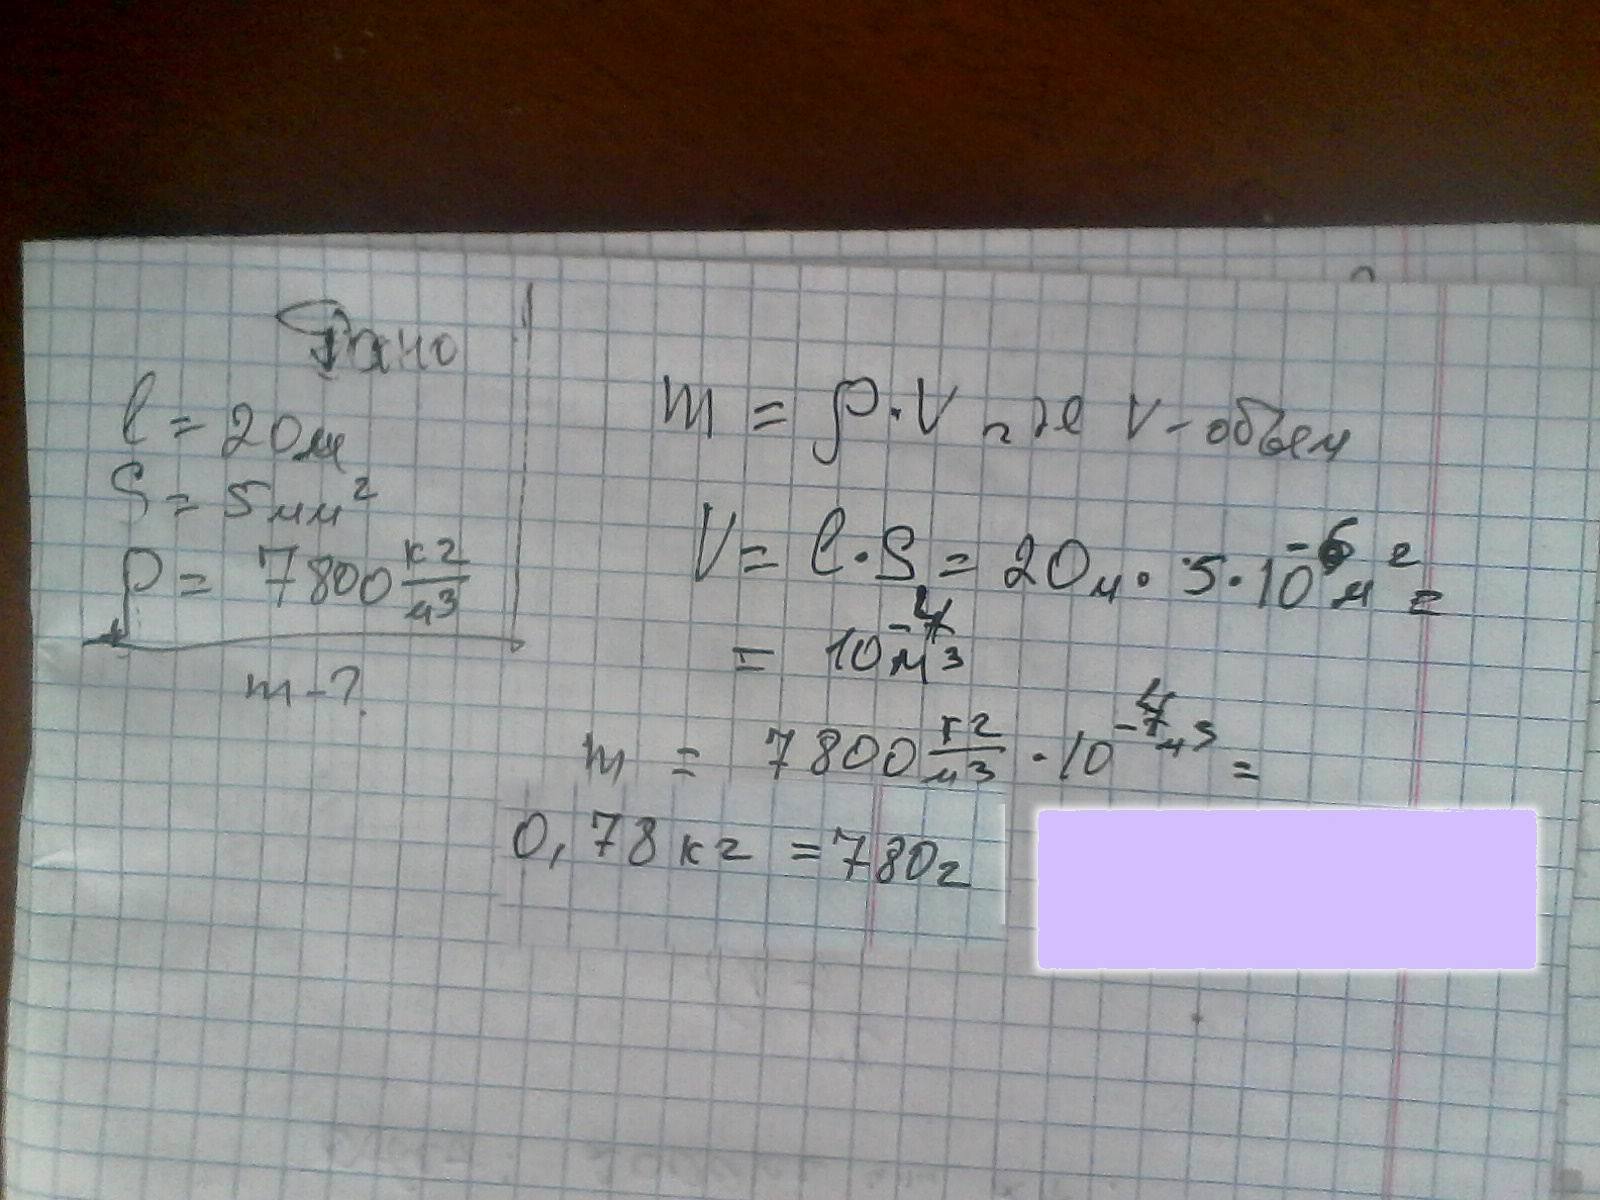 Дано
l = 20м
S = 5мм²
ρ = 7800 кг/м³
m - ?
m = ρ·V где V - объем
V = l·S = 20м · 5·10⁻⁶м² =
= 10⁻⁴м³
m = 7800 кг/м³ · 10⁻⁴м³ =
0,78 кг = 780г